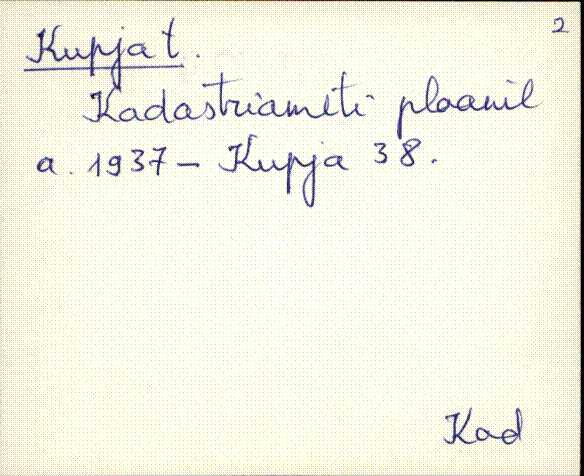 2
Kupja t.
Kadastriameti plaanil
a. 1937 – Kupja 38.
Kad